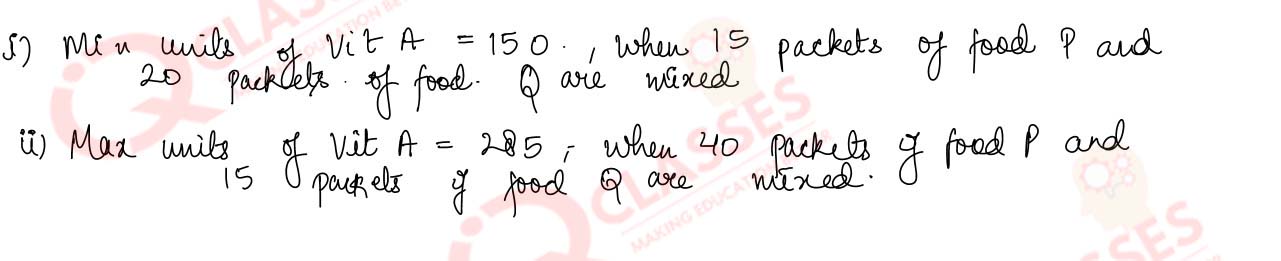 i) Min units of Vit A = 150., when 15 packets of food P and
20 packets of food. Q are mixed
ii) Max units of Vit A = 285, when 40 packets of food P and
15 packets of food Q are mixed.
CLASSES
MAKING EDUCATION